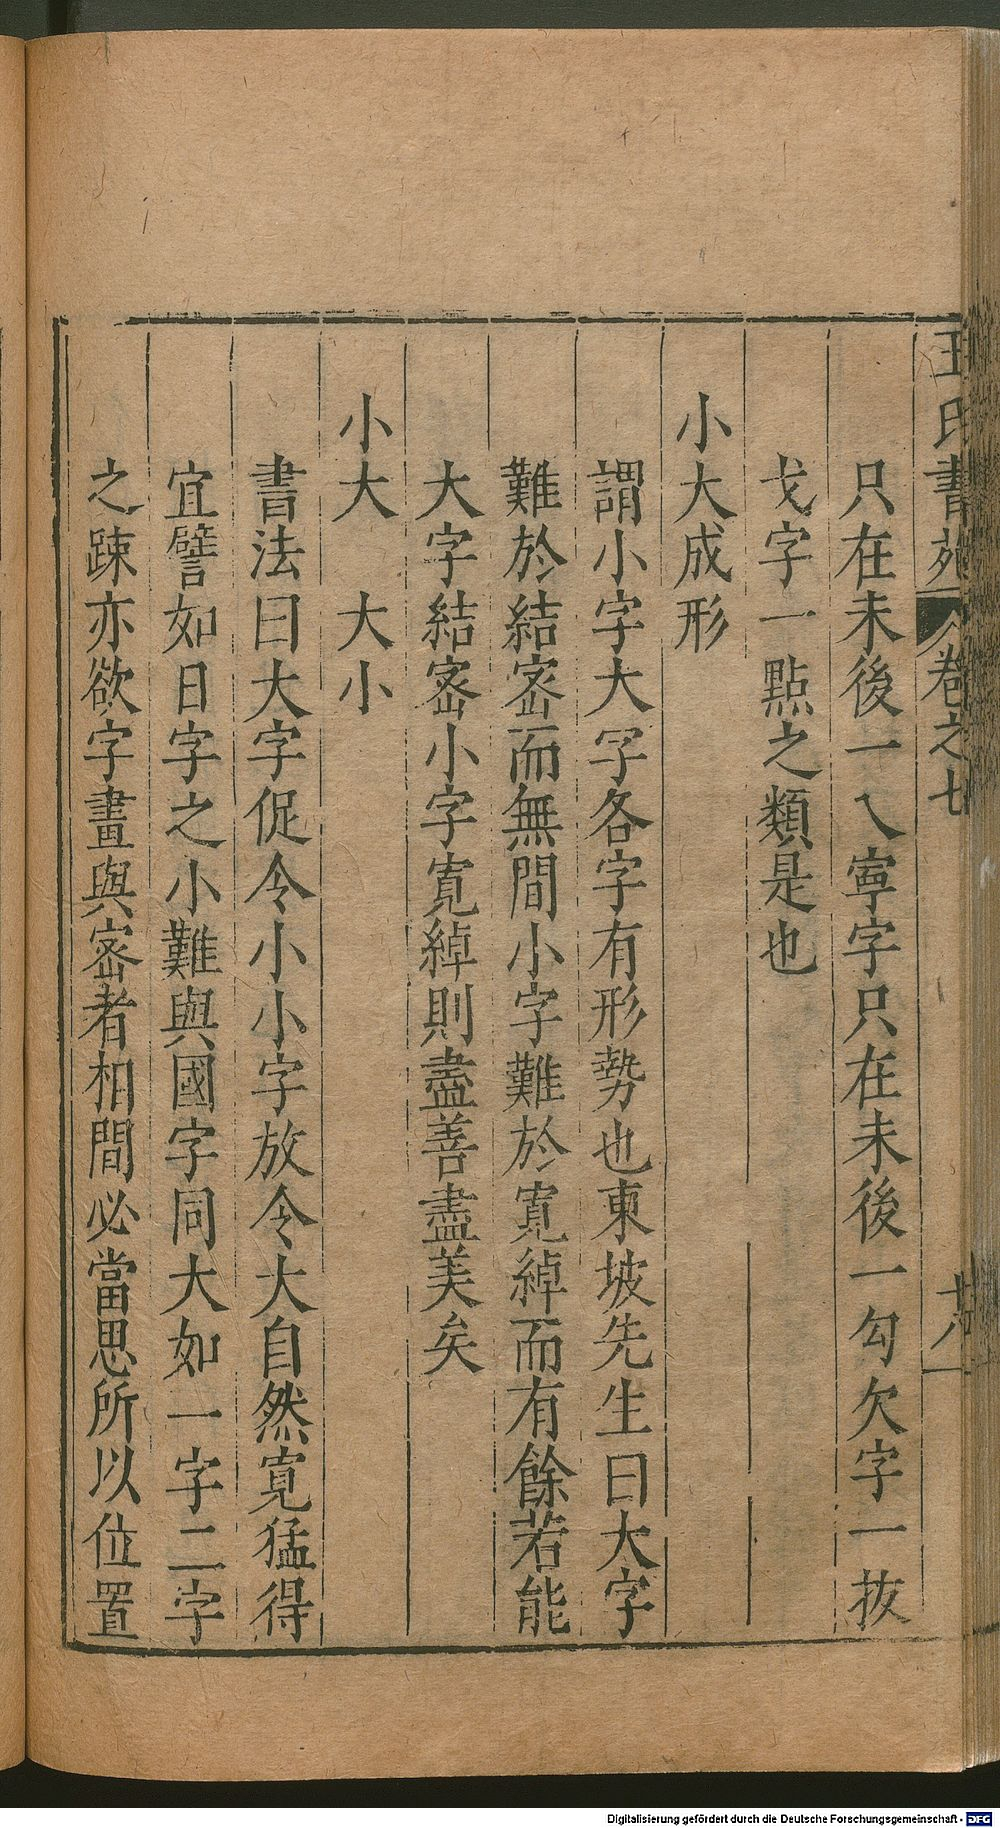 王氏書苑 卷之七 廿八
只在末後一乀寧字只在末後一勾欠字一拔
戈字一點之類是也
小大成形
謂小字大字各字有形勢也東坡先生曰大字
難於結密而無間小字難於寬綽而有餘若能
大字結密小字寬綽則盡善盡美矣
小大 大小
書法曰大字促令小小字放令大自然寬猛得
宜譬如日字之小難與國字同大如一字二字
之踈亦欲字畫與密者相間必當思所以位置
Digitalisierung gefördert durch die Deutsche Forschungsgemeinschaft - DFG